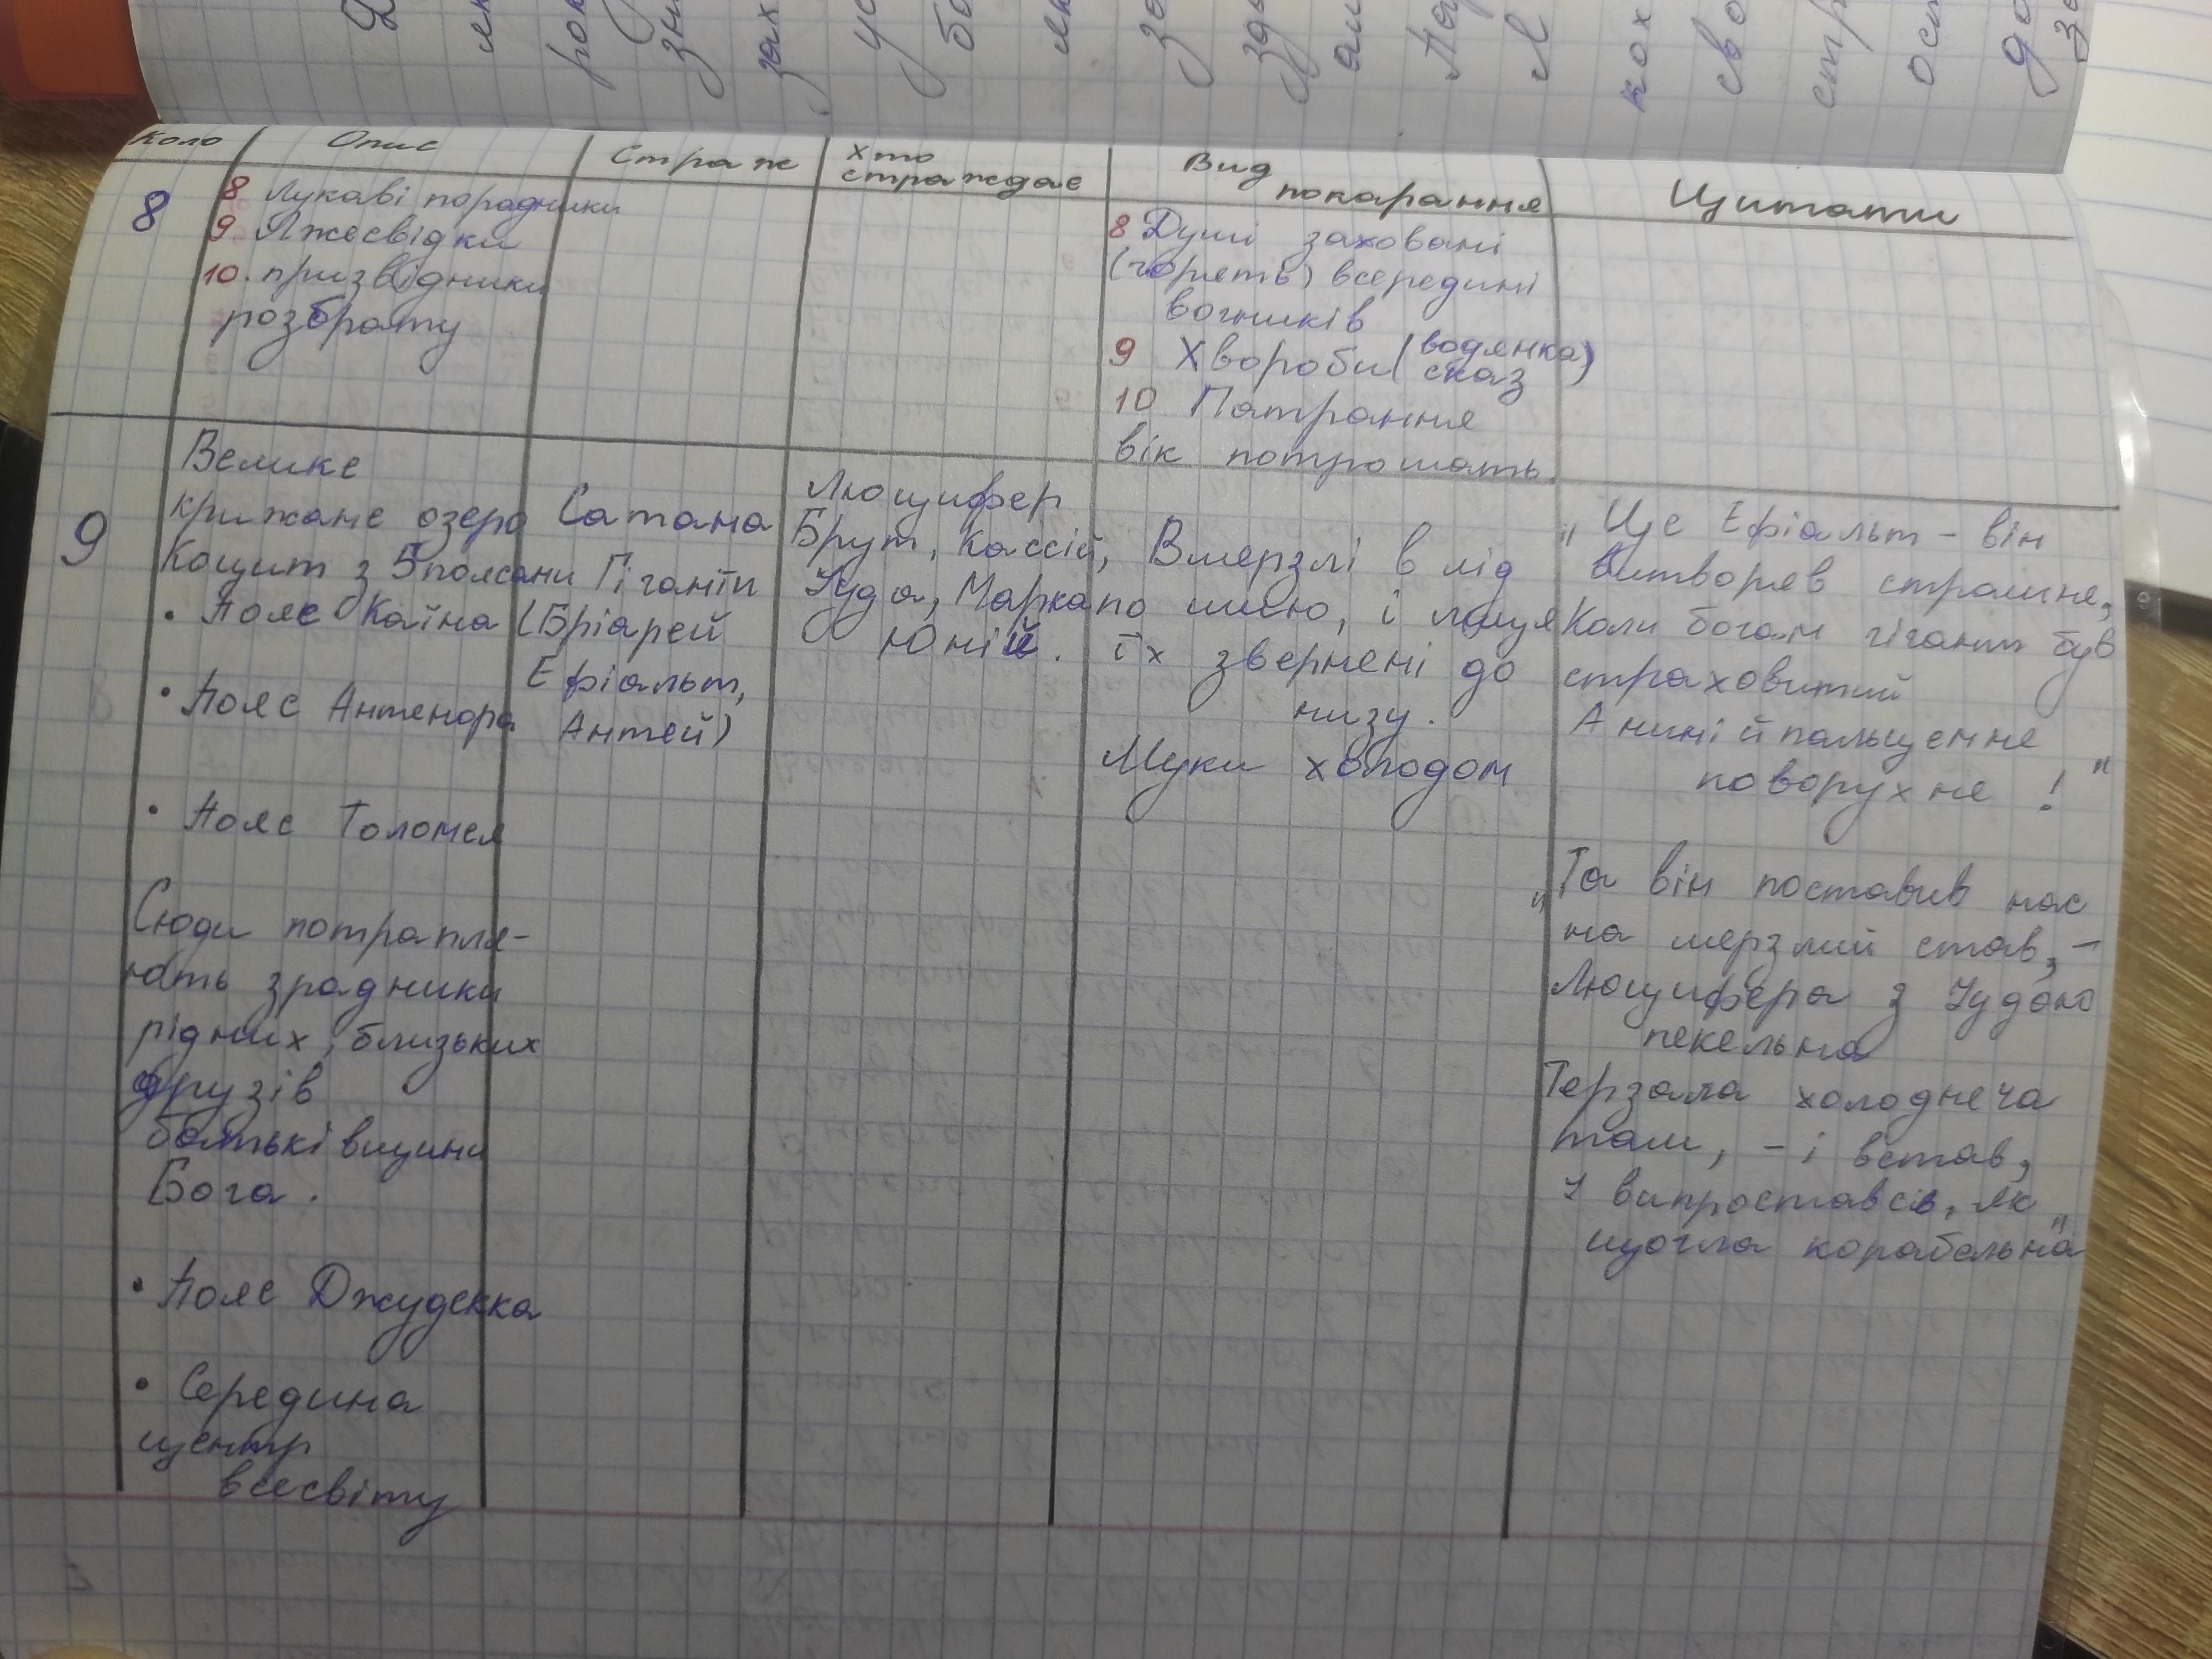 Коло Опис Страж Хто страждає Вид покарання Цитати
8
8 Лукаві порадники
9 Лжесвідки
10. призвідники
розбрату
8 Душі заховані
(горять) всередині
вогників
9 Хвороби (водянка, сказ)
10 Патрання
вік потрошать.
9
Велике
крижане озеро
Коцит з 5 поясами
• Пояс Каїна
• Пояс Антенора
• Пояс Толомея
Сюди потрапля-
ють зрадники
рідних, близьких
друзів
батьківщини
Бога.
• Пояс Джудекка
• Середина
центр
всесвіту
Сатана
Гіганти
(Бріарей
Ефіальт,
Антей)
Люцифер
Брут, Кассій,
Іуда, Марка
Юній.
Вмерзлі в лід
по шию, і лиця
їх звернені до
низу.
Муки холодом
„Це Ефіальт – він
витворяв страшне,
Коли богам гігант був
страховитий
А нині й пальцем не
поворухне!"
„Та він поставив нас
на мерзлий став, –
Люцифера з Іудою
пекельна
Терзала холоднеча
там, – і встав,
І випроставсь, як
щогла корабельна"